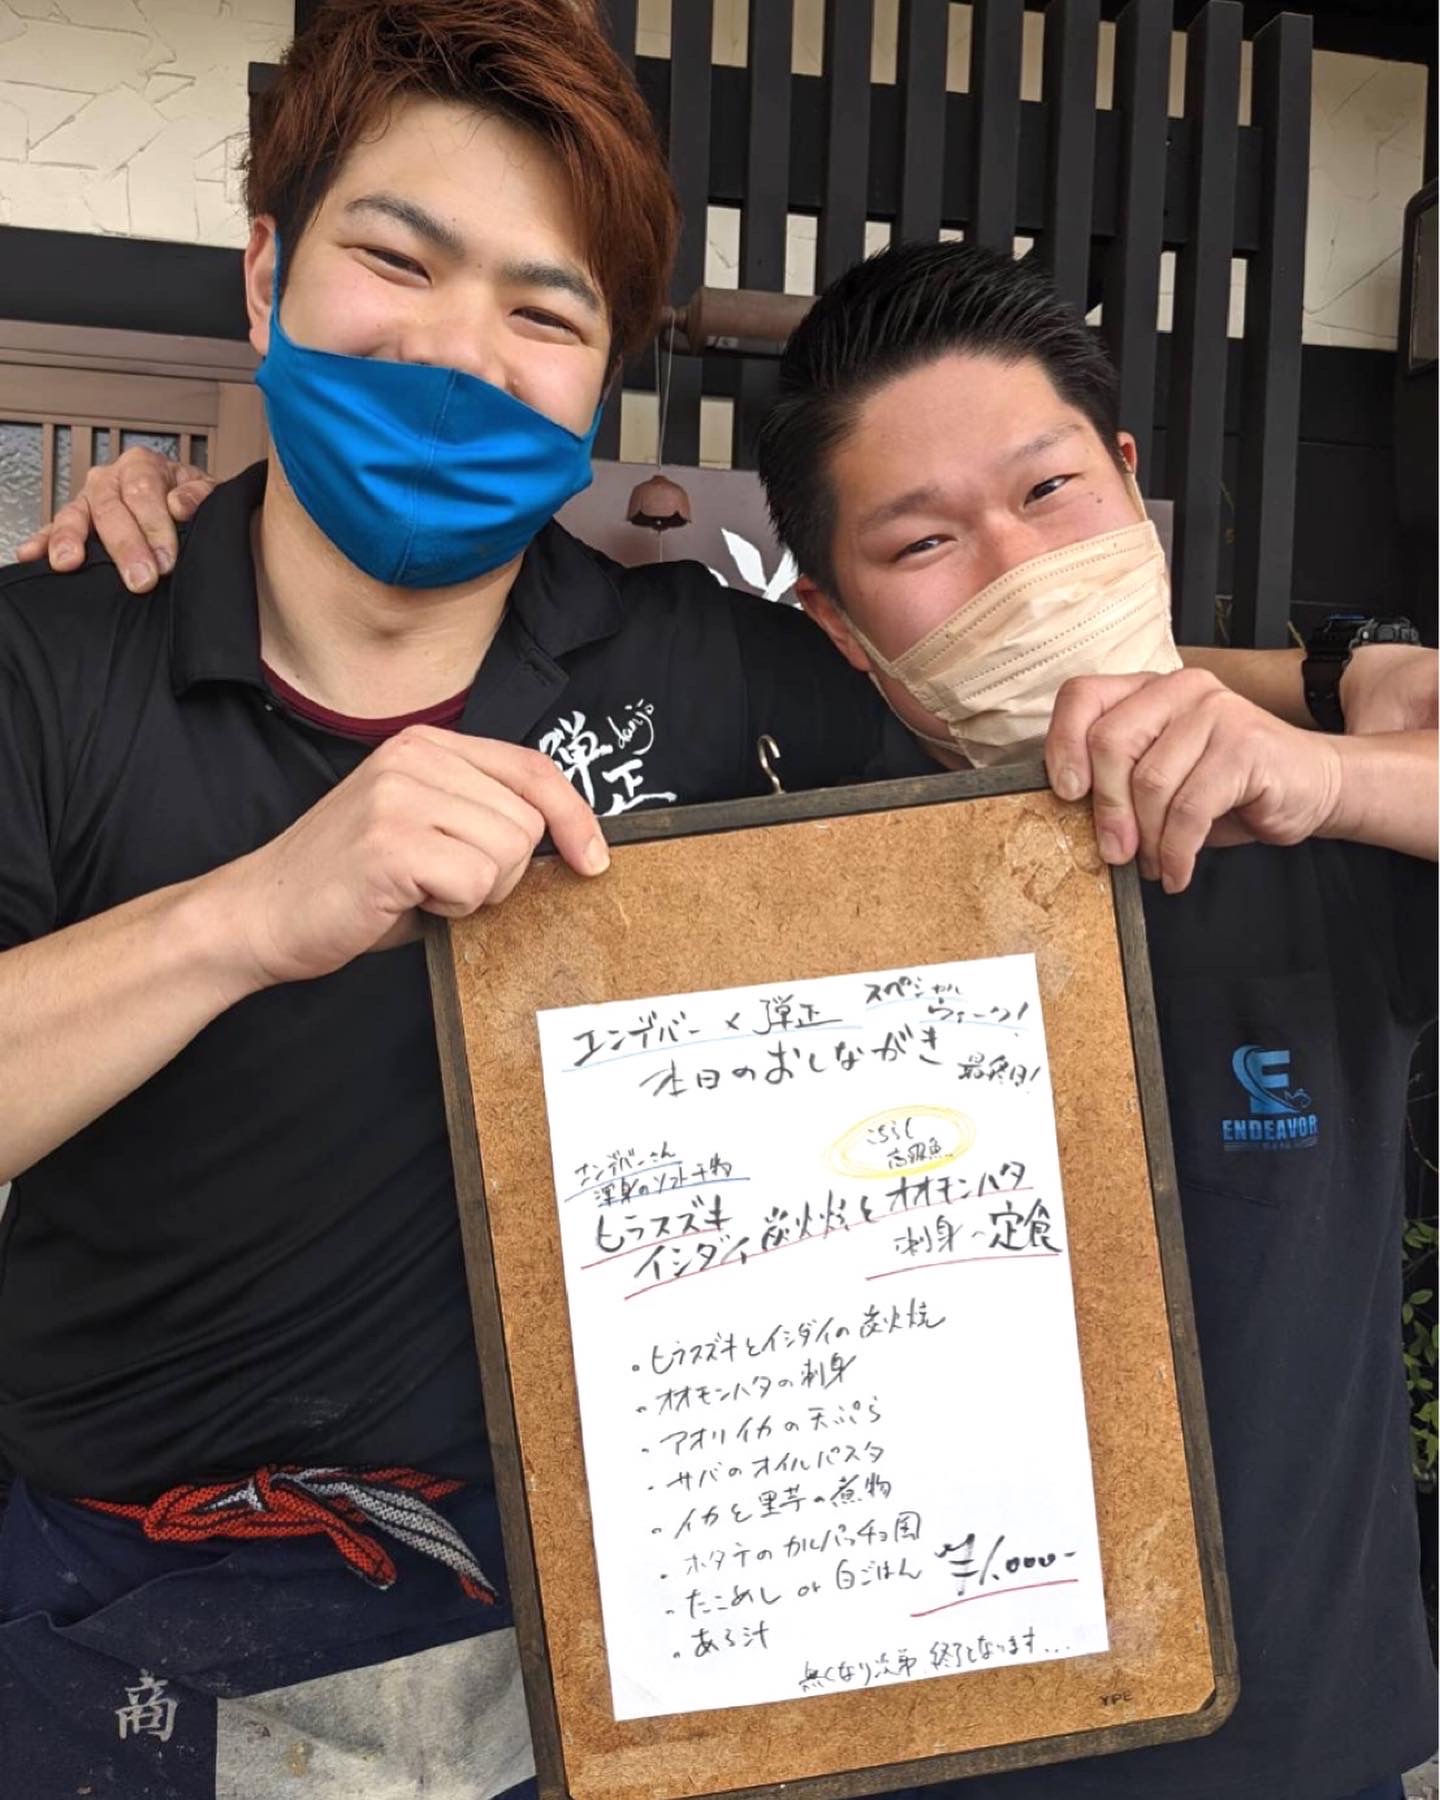 弾正
danjo
ENDEAVOR
エンデバー × 弾正 スペシャルウィーク!
本日のおしながき 最終日!
エンデバーさん
渾身のソフト干物
こちらも
高級魚
ヒラスズキ
イシダイ 炭火焼と オオモンハタ
刺身の定食
・ヒラスズキとイシダイの炭火焼
・オオモンハタの刺身
・アオリイカの天ぷら
・サバのオイルパスタ
・イカと里芋の煮物
・ホタテのカルパッチョ風
・たこめし or 白ごはん
¥1,000-
・あら汁
無くなり次第、終了となります...
商
YPE